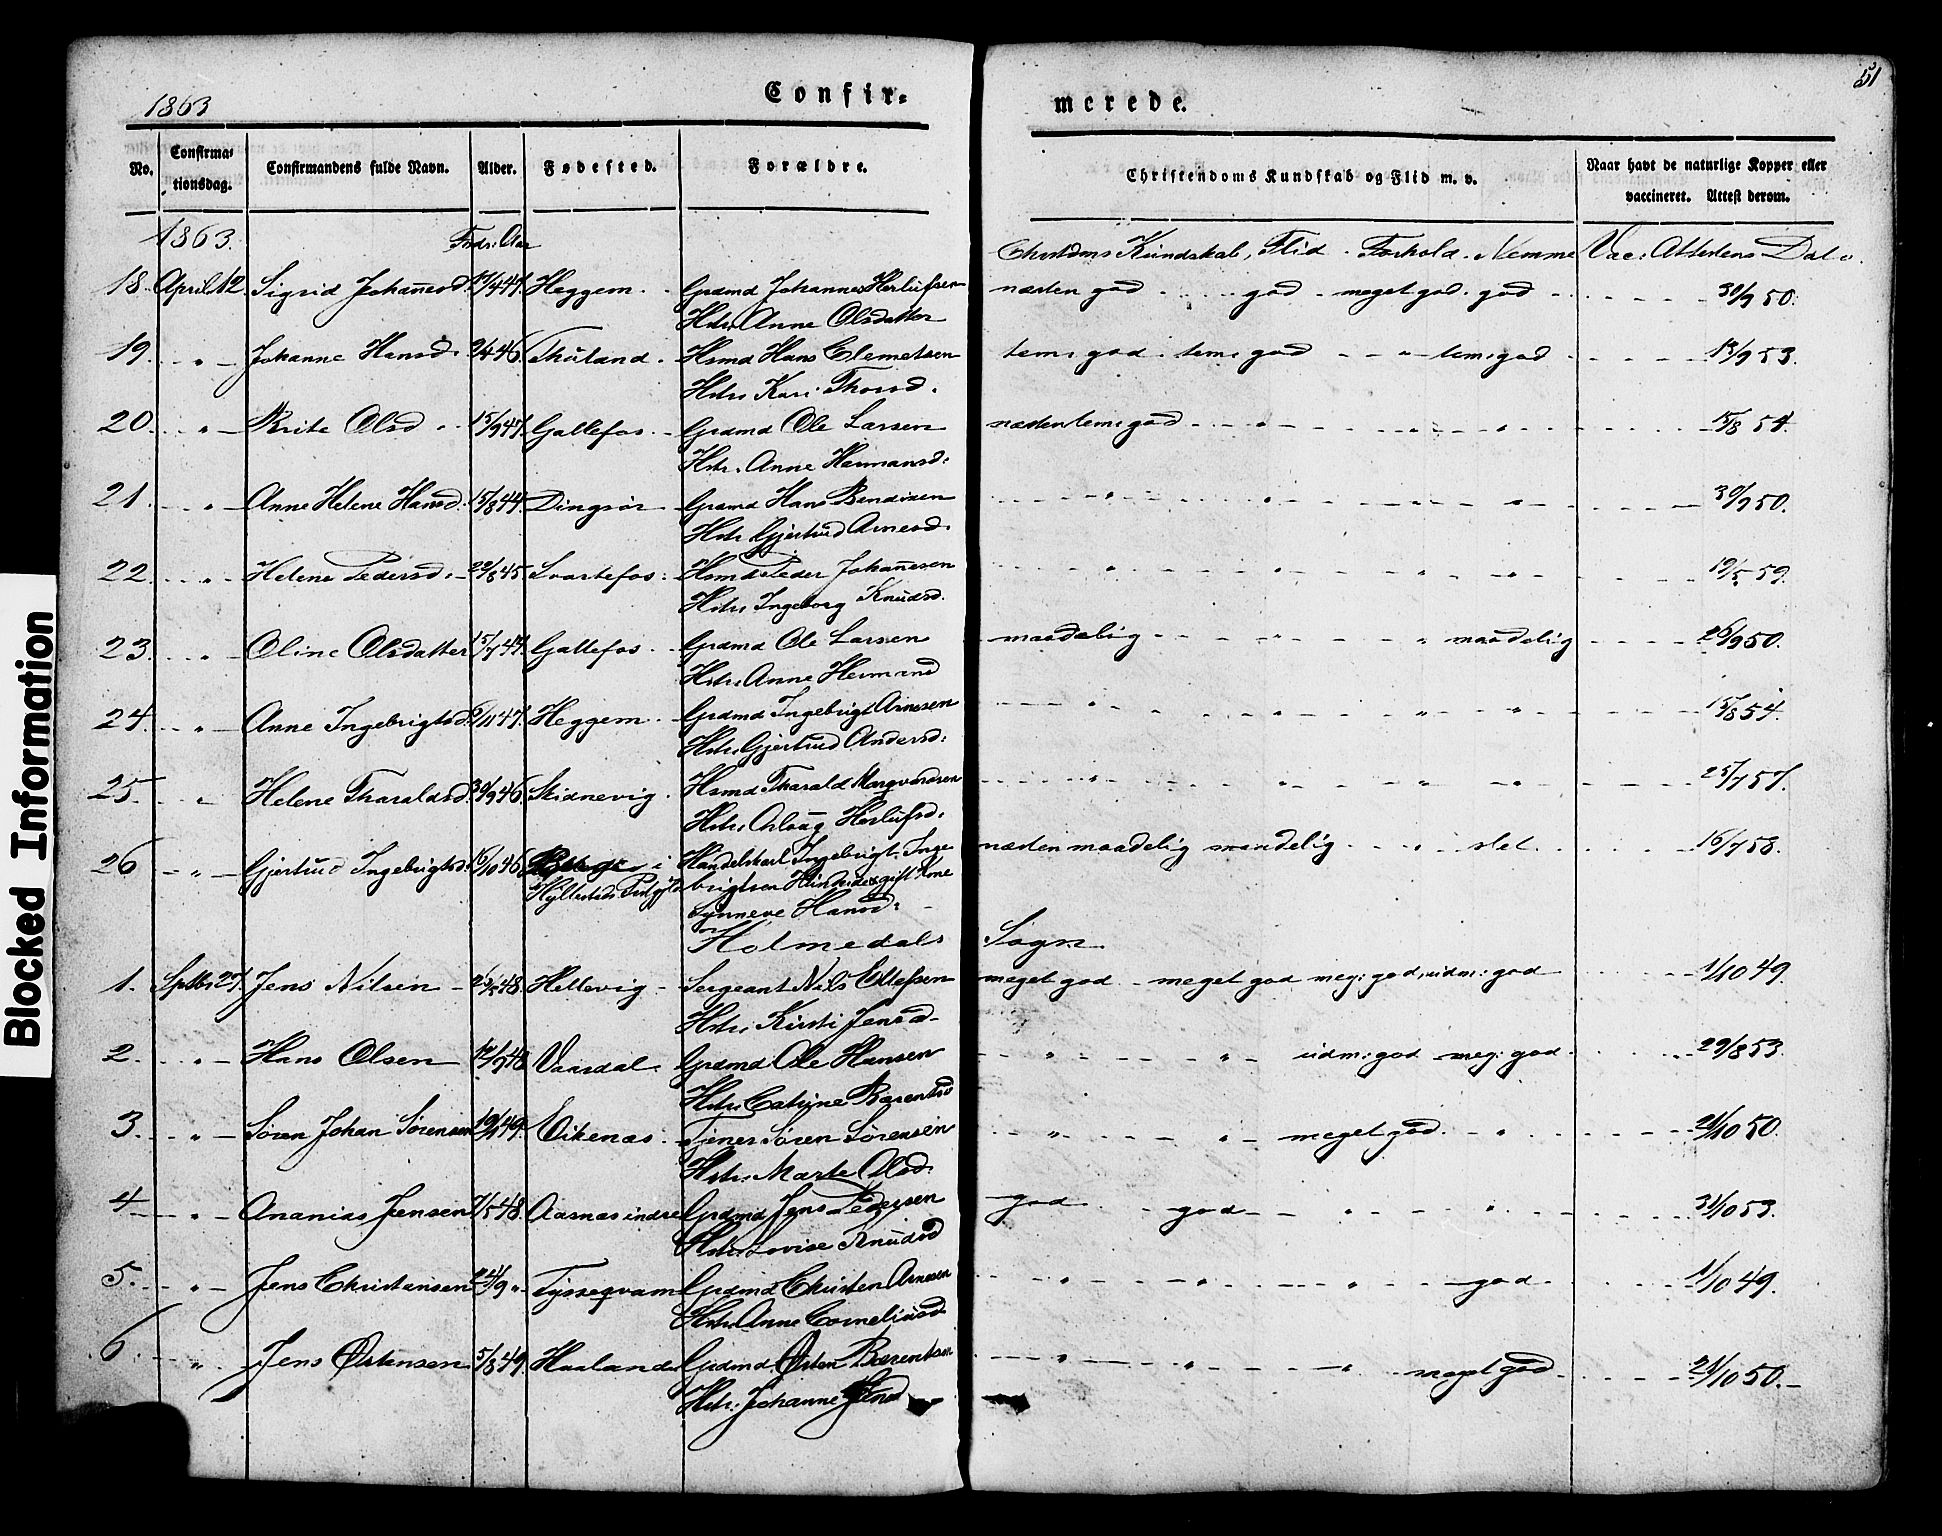 51
1863 Confir- merede.
No. Confirmationsdag. Confirmandens fulde Navn. Alder. Fødested. Forældre. Christendoms Kundskab og Flid m. v. Naar havt de naturlige Kopper eller vaccineret. Attest derom.
1863. Føds: Aar Chrstdms Kundskab, Flid. Forhold. Nemme Vac: Attestens Dato.
18. April 12. Sigrid Johanesd. Heggem. Grdmd Johannes Herlufsen næsten god god meget god. god 30/9 50.
Hstr. Anne Olsdatter
19. " Johanne Hansd. 2/4 46. Hsmd Hans Clemetsen tem: god. tem: god " tem: god 13/9 53.
Hstr. Kari Thorsd.
20. " Brite Olsd. 15/9 47. Gallefos. Grdmd Ole Larsen næsten tem: god " " " 15/8 54.
Hstr. Anne Hermansd:
21. " Anne Helene Hansd. 15/8 44. Dingsør. Grdmd Hans Bendixen " " " " 30/9 50.
Hstr. Gjertrud Arnesd.
22. " Helene Pedersd. 22/8 45. Svartefos: Hsmd Peder Johanesen " " " " 19/5 59.
Hstr. Ingeborg Knudsd.
23. " Oline Olsdatter 15/7 44. Gallefos. Grdmd Ole Larsen maadelig " maadelig 26/9 50.
Hstr. Anne Hermansd
24. " Anne Ingebrigtsd. 47. Heggem. Grdmd Ingebrigt Arnesen " " " " 15/8 54.
Hstr. Gjertrud Andersd:
25. " Helene Tharaldsd. 30/9 46. Skidnevig. Hsmd Tharald Margvardsen " " " " 25/7 57.
Hstr. Herlufsd:
26 " Gjertrud Ingebrigtsd. 46. i Handelskarl Ingebrigt Inge næsten maadelig maadelig " slet 16/7 58.
Hyllestads Prstgjld brigtsen gift Kone
Synneve Hansd:
Holmedals Sogn.
1. Septbr 27. Jens Nilsen 48. Hellevig Sergeant Nils Ellefsen meget god meget god meg: god, udm: god 1/10 49.
Hstr. Kirsti Jensd
2. " Hans Olsen 48 Vaardal. Grdmd Ole Hansen " " udm: god meg: god. 29/8 53.
Hstr. Catrine Barentsd
3. " Søren Johan Sørensen 49. Eikenæs. Tjener Søren Sørensen " " meget god " 21/10 50.
Hstr. Marte Olsd.
4 " Ananias Jensen 7/5 48. Aasnæs indre Grdmd Jens Pedersen god god " " 31/10 53.
Hstr. Lovise Knudsd
5. " Jens Christensen 21/9 " Tysseqvam Grdmd Christen Arnesen " " " god 1/10 49.
Hstr. Anne Corneliusd
6. " Jens Østensen 5/8 49. Haaland Grdmd Østen Barentsen " " " meget god 21/10 50.
Hstr. Johanne Jensd
Blocked Information